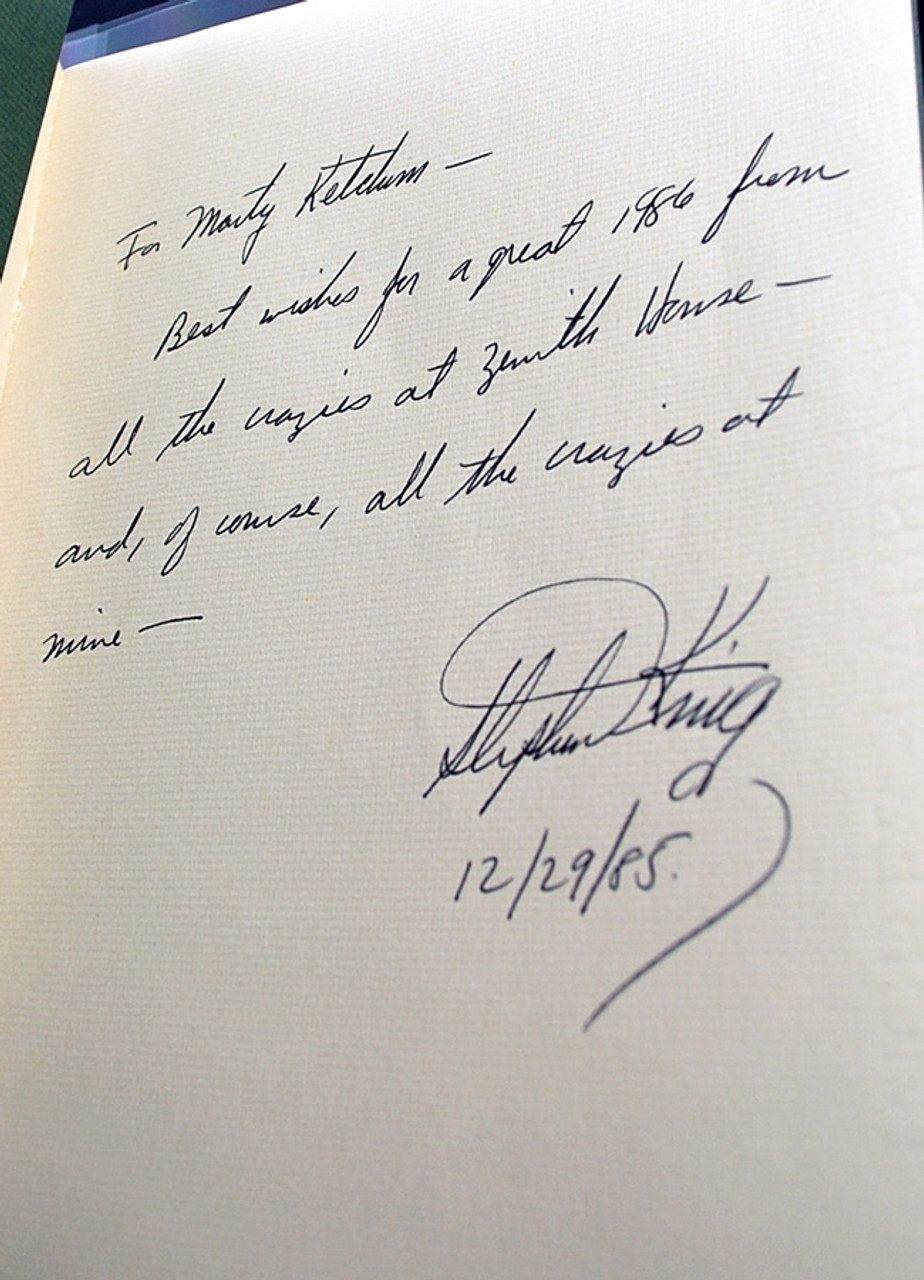 For Marty Ketchum —
Best wishes for a great 1986 from
all the crazies at Zenith House —
and, of course, all the crazies at
mine —
Stephen King
12/29/85.